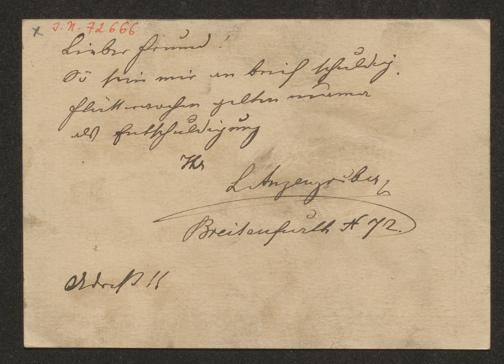 J. N. 72666
Lieber Freund!
Sö sein mir an brief schuldig.
Flitterwochen gelten nimmer
als Entschuldigung
Ihr
L Anzengruber
Breitenfurth N 72.
Adreß!!